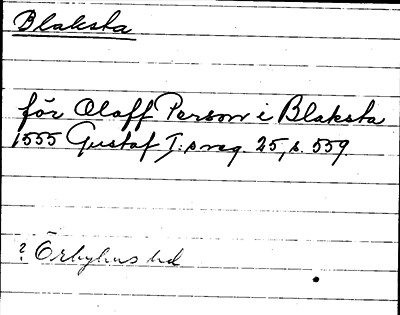 Blaksta
för Oloff Person i Blaksta
1555 Gustaf I:s reg. 25, s. 559.
? Örbyhus hd